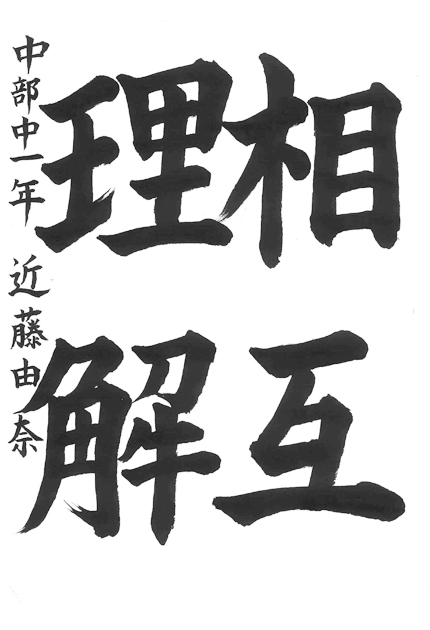 相互
理解
中部中一年 近藤由奈